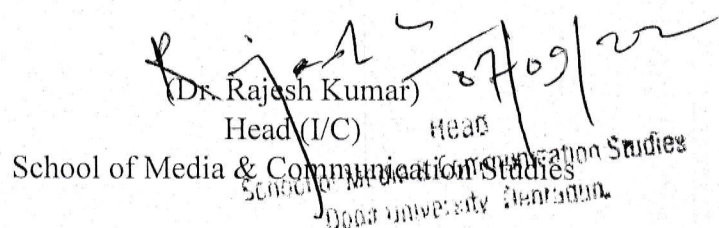 07/09/22
(Dr. Rajesh Kumar)
Head (I/C)
Head
School of Media & Communication Studies
School of Media & Communication Studies
Doon University Dehradun.